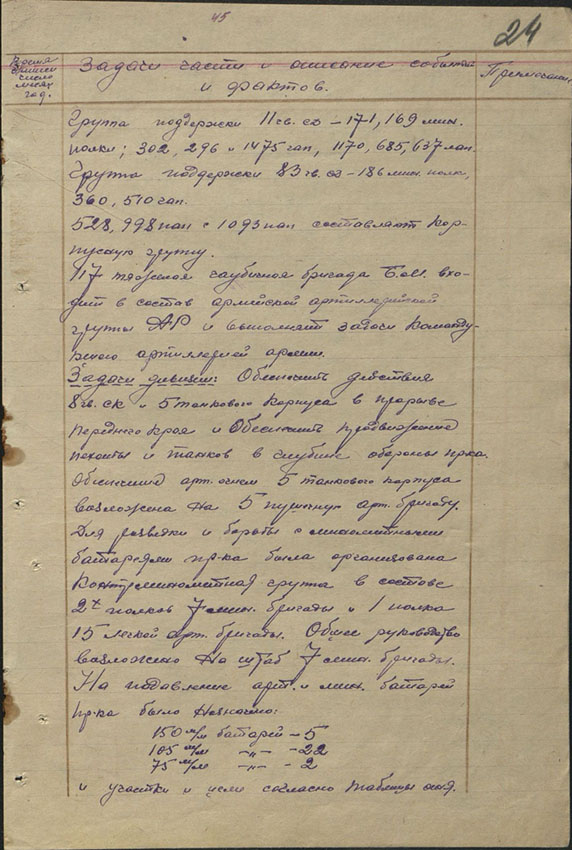 45
24
Время
число
месяц
год.
Задачи части и описание событий
и фактов.
Примечание
Группа поддержки 11 гв. сд – 171, 169 мин.
полки; 302, 296 и 1475 гап, 1170, 685, 637 лап.
Группа поддержки 83 гв. сд – 186 мин. полк,
360, 510 гап.
528, 998 пап и 1093 пап составляют кор-
пусную группу.
117 тяжелая гаубичная бригада Б.М. вхо-
дит в состав армейской артиллерийской
группы АР и выполняет задачи команду-
ющего артиллерией армии.
Задачи дивизии: Обеспечить действия
8 гв. ск и 5 танкового корпуса в прорыве
переднего края и обеспечить продвижение
пехоты и танков в глубине обороны пр-ка.
Обеспечение арт. огнем 5 танкового корпуса
возложена на 5 пушечную арт. бригаду.
Для разведки и борьбы с минометными
батареями пр-ка была организована
Контрминометная группа в составе
2х полков 7 мин. бригады и 1 полка
15 легкой арт. бригады. Общее руководство
возложено на штаб 7 мин. бригады.
На подавление арт. и мин. батарей
пр-ка было назначено:
150 м/м батарей – 5
105 м/м –"– – 22
75 м/м –"– – 2
и участки и цели согласно таблицы огня.